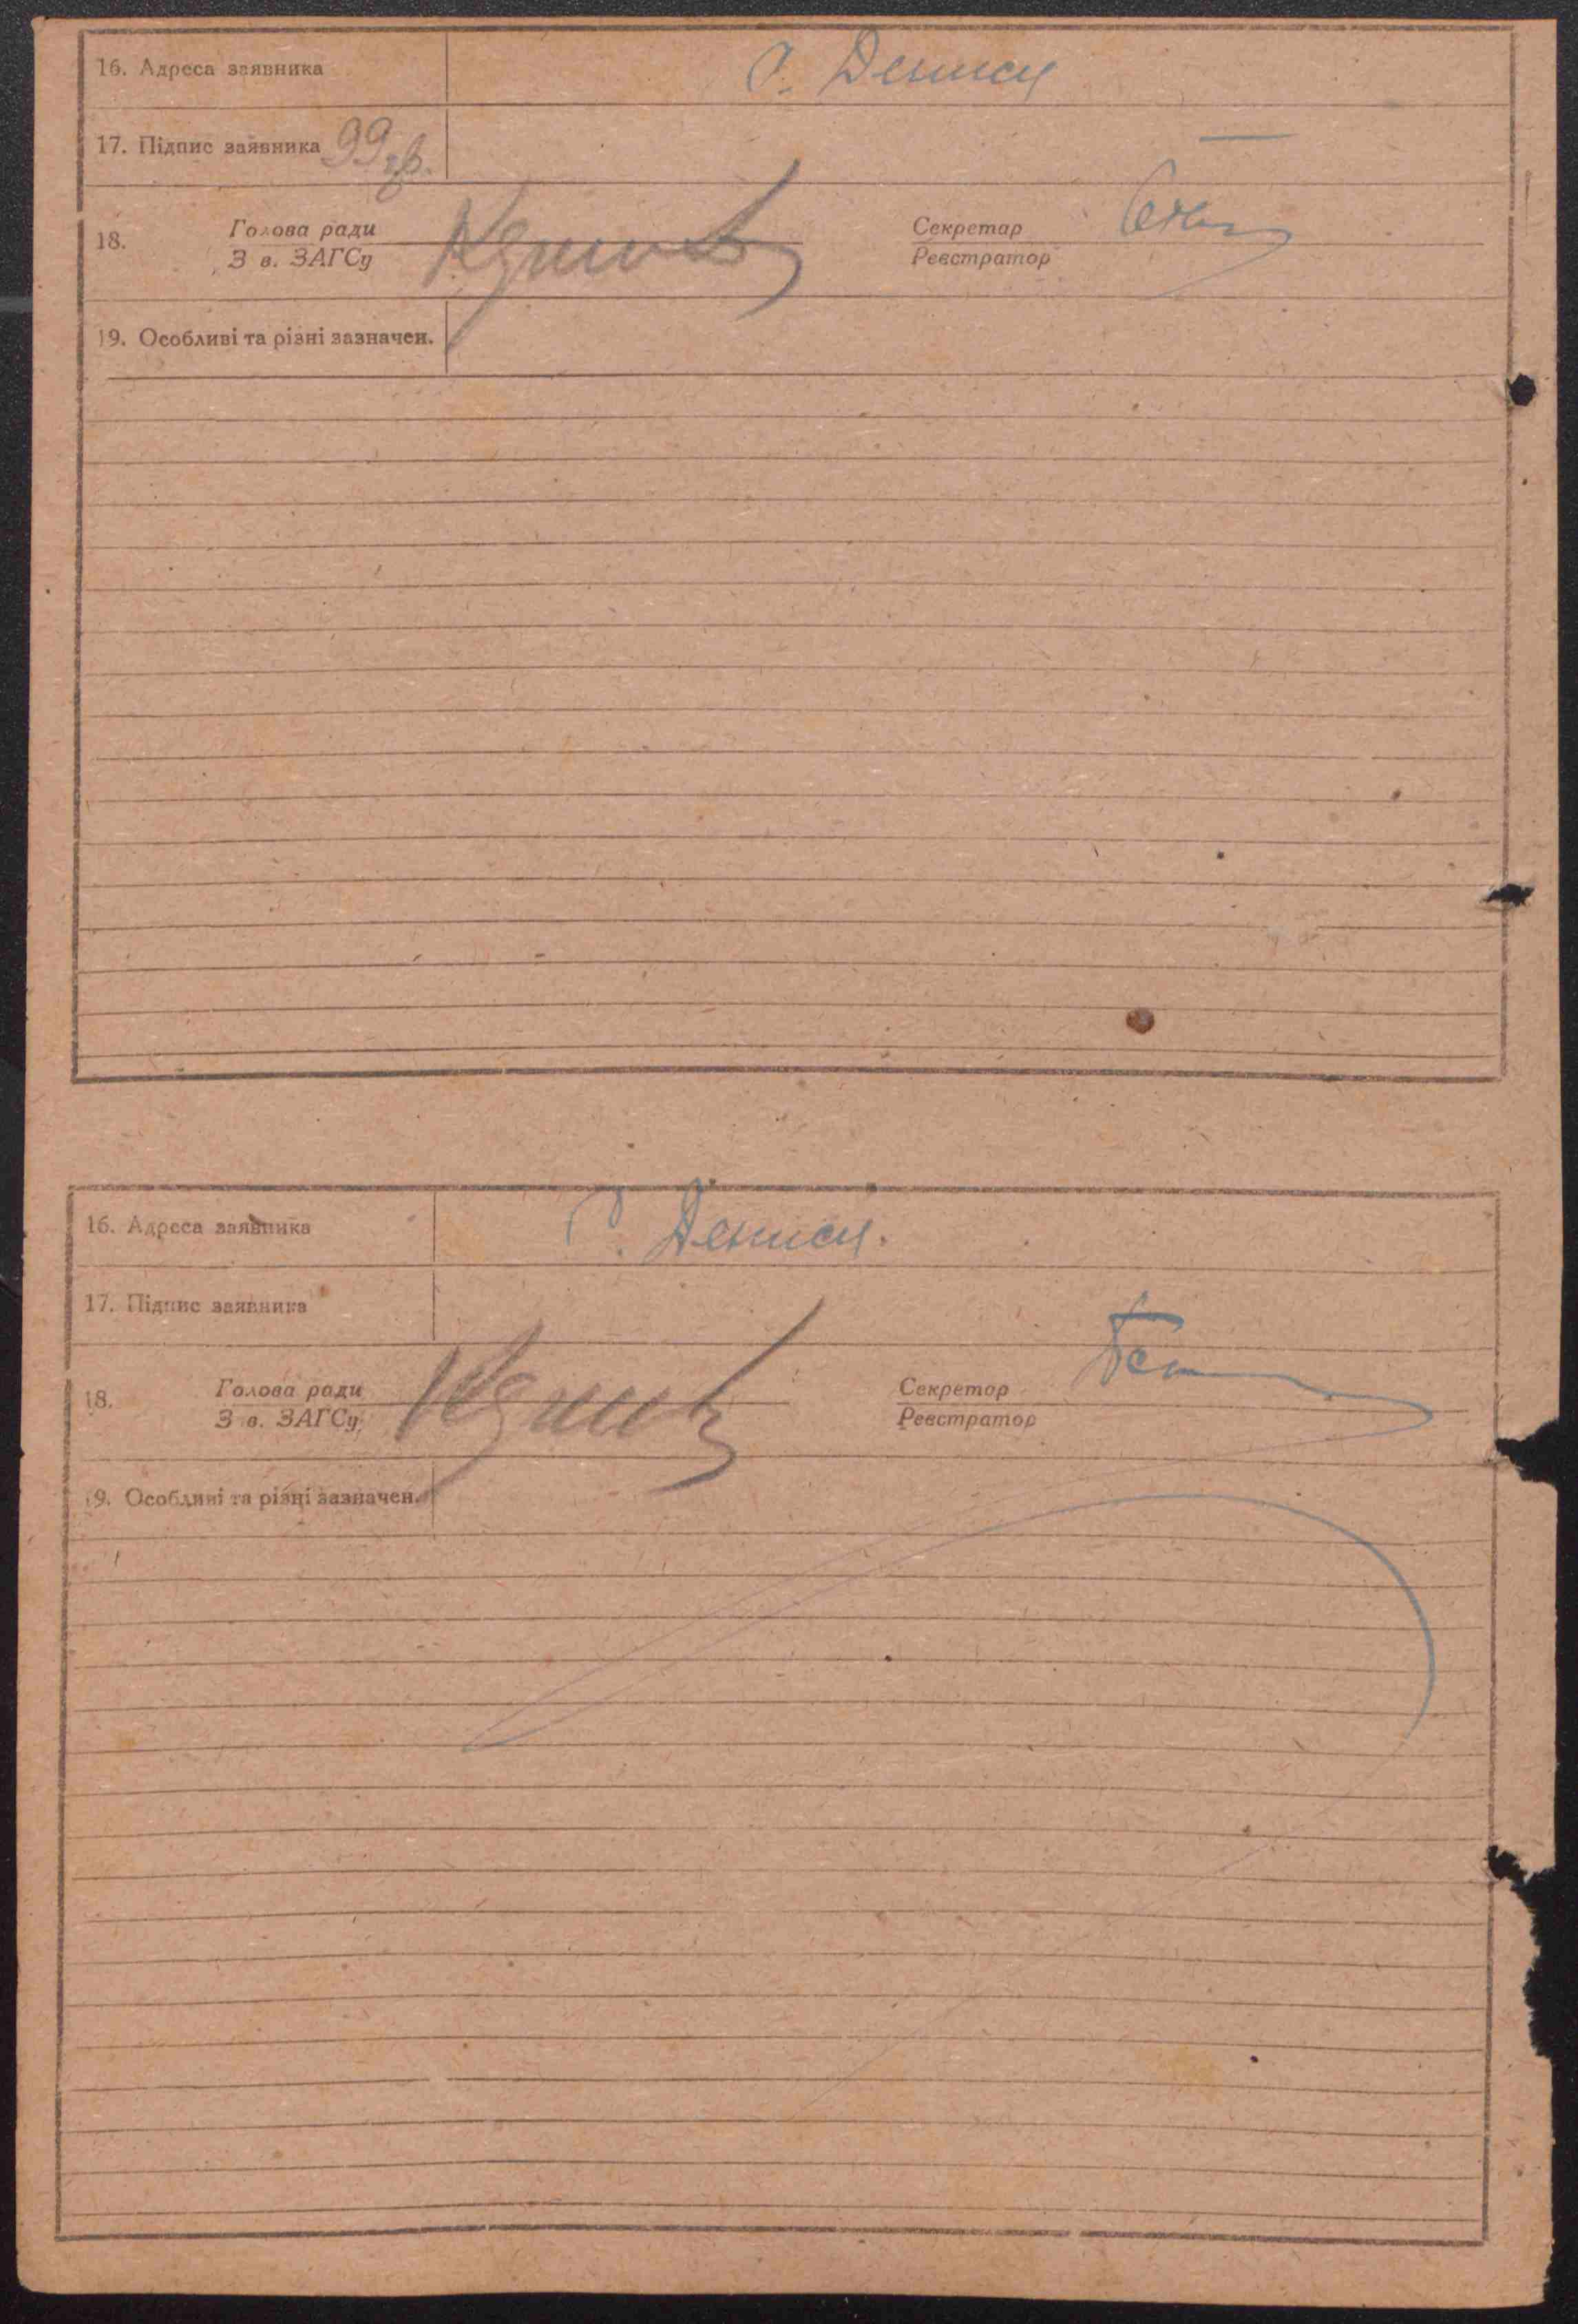 16. Адреса заявника с. Дениси
17. Підпис заявника 99 зв. —
18. Голова ради Секретар
З в. ЗАГСу Реєстратор
19. Особливі та різні зазначен.
16. Адреса заявника с. Дениси.
17. Підпис заявника
18. Голова ради Секретар
З в. ЗАГСу Реєстратор
19. Особливі та різні зазначен.